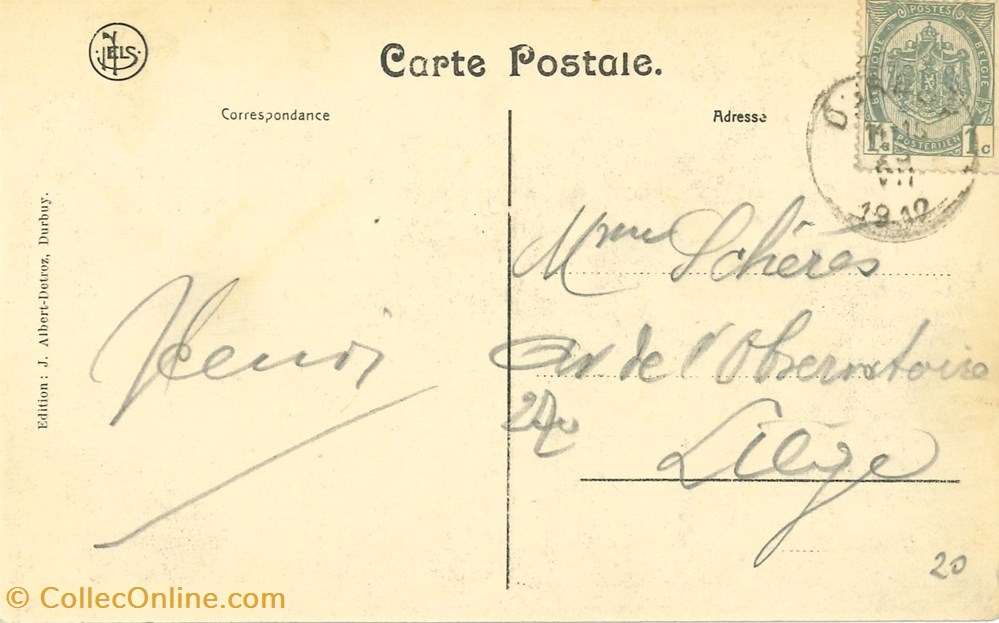 NELS
Carte Postale.
POSTES
BELGIQUE
BELGIE
POSTERIJEN
1c
1c
Correspondance
Adresse
VII
Edition: J. Albert-Detroz, Durbuy.
Mme Schérès
Henri
Av de l'Observatoire
Liège
20
© CollecOnline.com